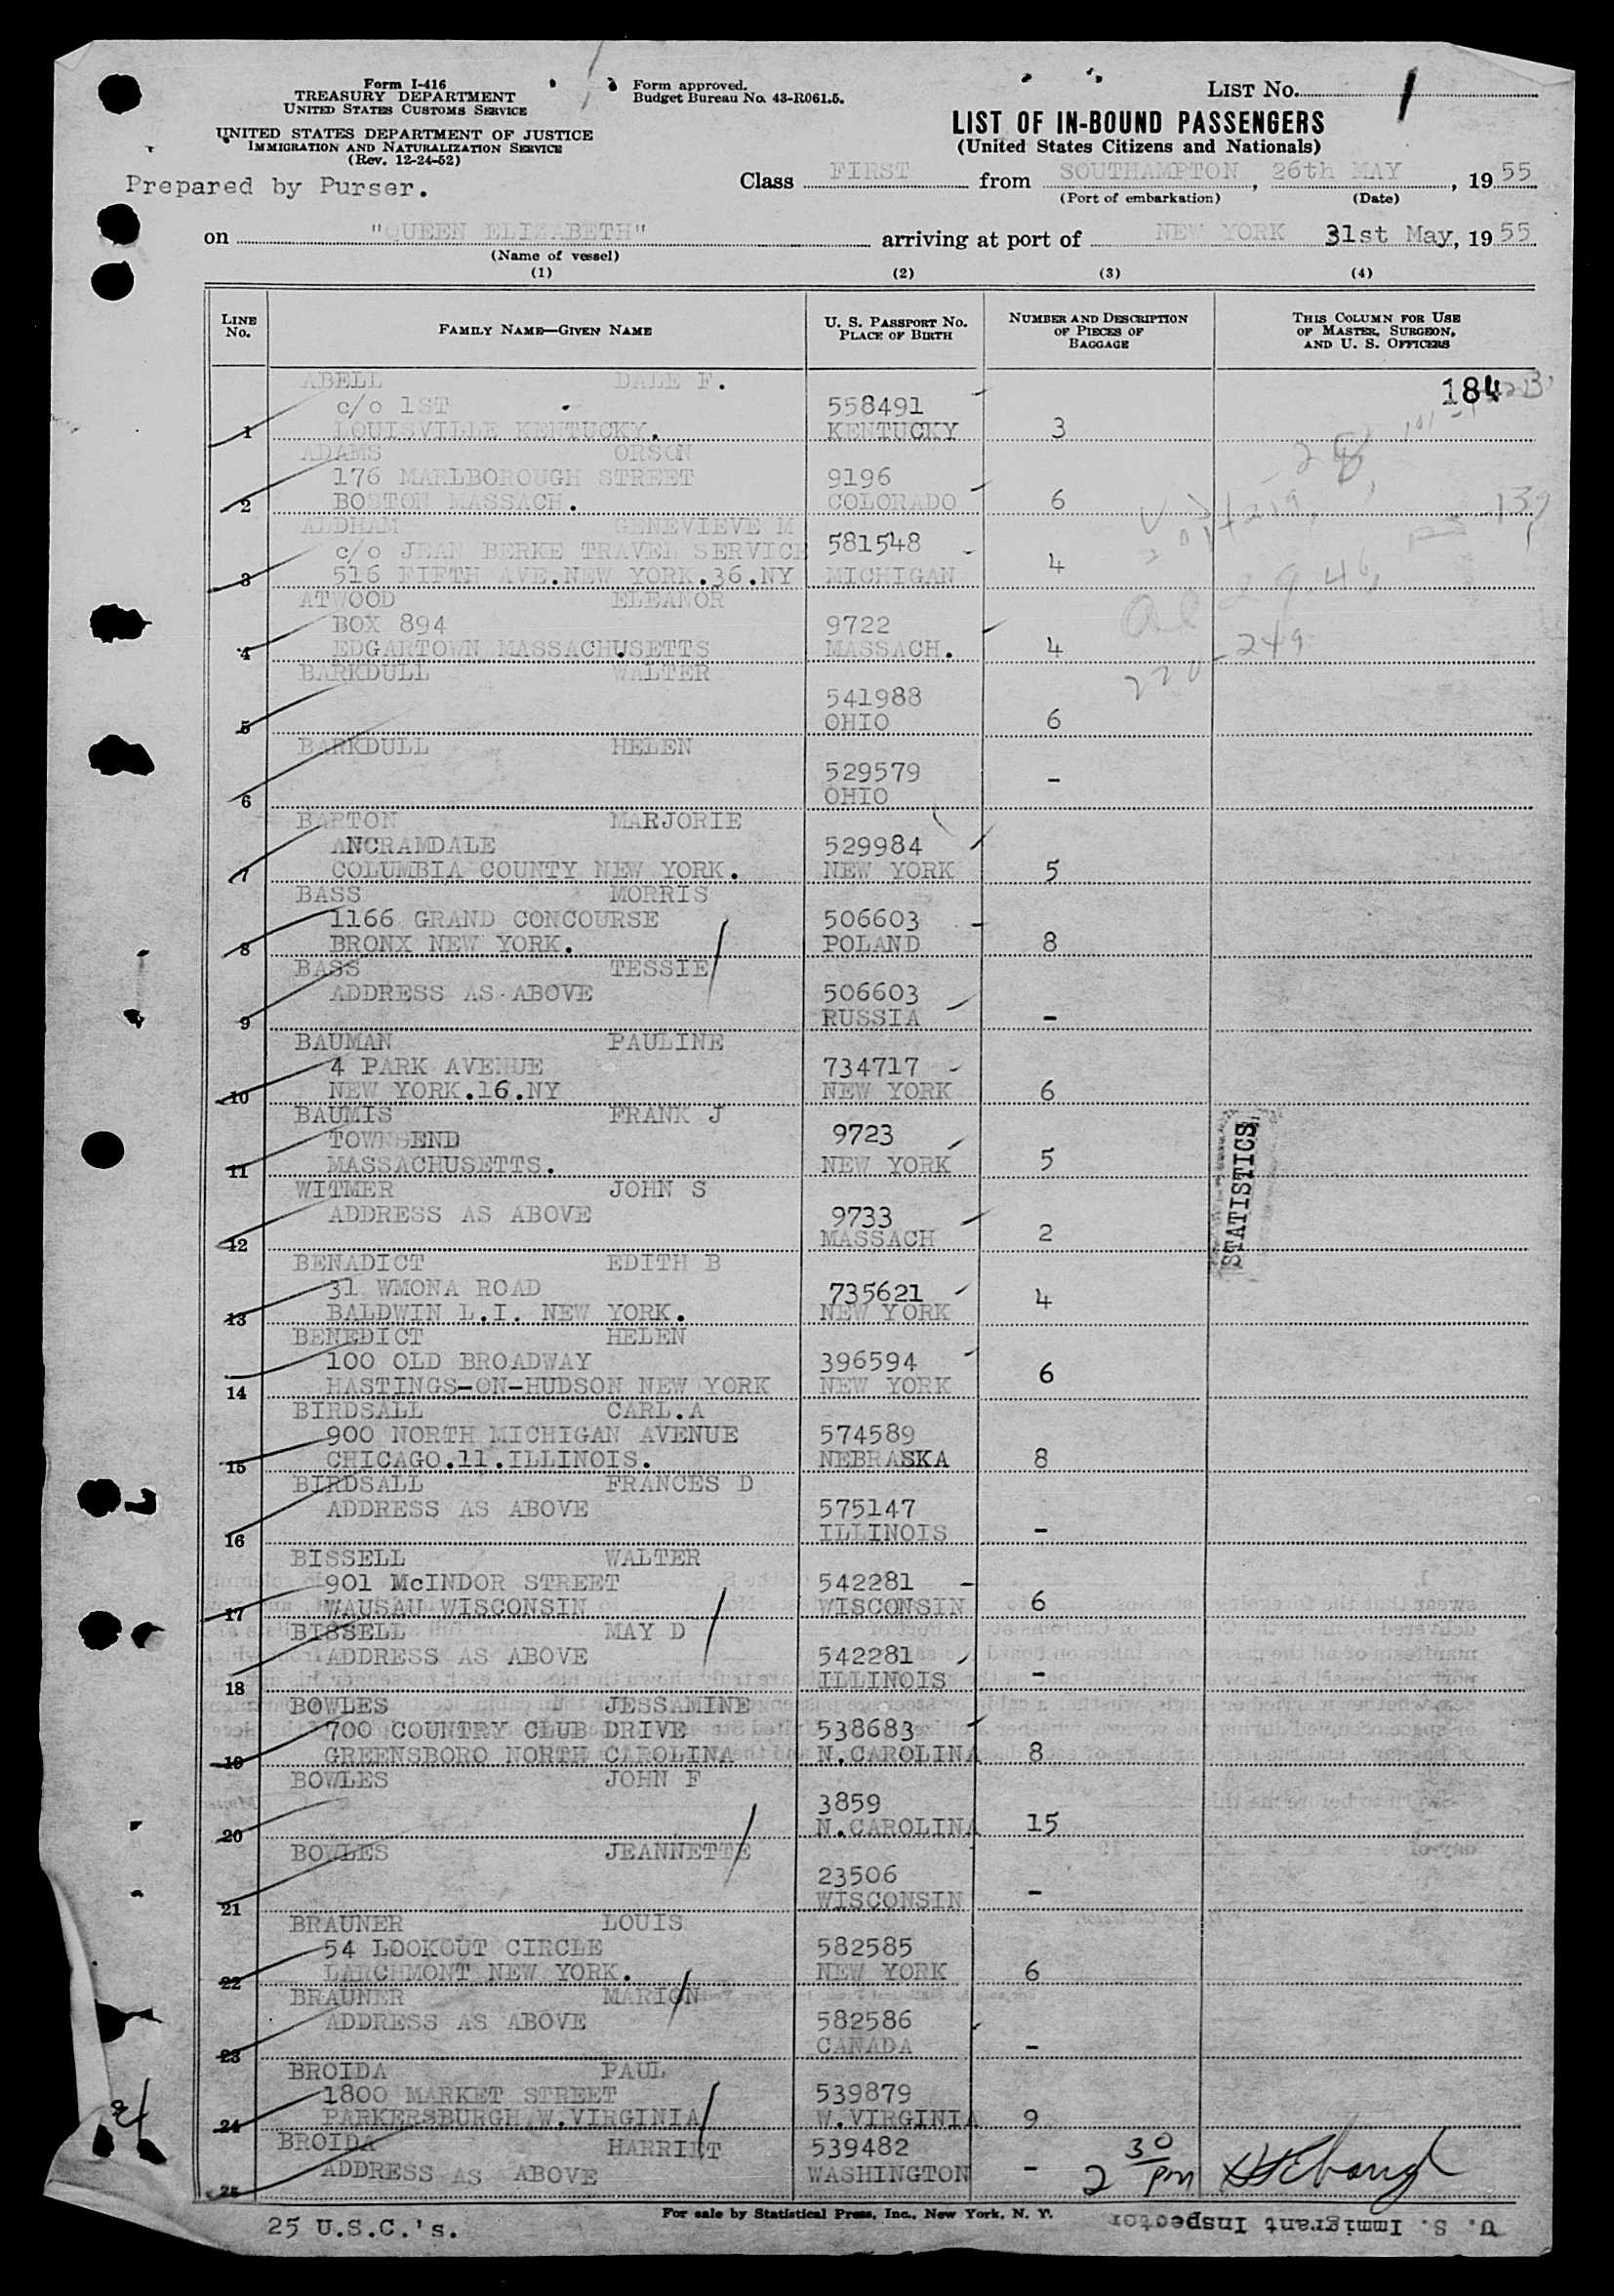 Form I-416
TREASURY DEPARTMENT
UNITED STATES CUSTOMS SERVICE
UNITED STATES DEPARTMENT OF JUSTICE
IMMIGRATION AND NATURALIZATION SERVICE
(Rev. 12-24-52)
Prepared by Purser.
Form approved.
Budget Bureau No. 43-R061.5.
LIST No. 1
LIST OF IN-BOUND PASSENGERS
(United States Citizens and Nationals)
Class FIRST from SOUTHAMPTON, 26th MAY, 1955
(Port of embarkation) (Date)
on "QUEEN ELIZABETH" arriving at port of NEW YORK 31st May, 1955
(Name of vessel)
(1) (2) (3) (4)
LINE No. FAMILY NAME—GIVEN NAME U. S. PASSPORT NO. PLACE OF BIRTH NUMBER AND DESCRIPTION OF PIECES OF BAGGAGE THIS COLUMN FOR USE OF MASTER, SURGEON, AND U. S. OFFICERS
184
ABELL DALE F.
c/o 1ST 558491
1 LOUISVILLE KENTUCKY. KENTUCKY 3
ADAMS ORSON
176 MARLBOROUGH STREET 9196
2 BOSTON MASSACH. COLORADO 6
ALDHAM GENEVIEVE M
c/o JEAN BERKE TRAVEL SERVICE 581548
3 516 FIFTH AVE.NEW YORK.36.NY MICHIGAN 4
ATWOOD ELEANOR
BOX 894 9722
4 EDGARTOWN MASSACHUSETTS MASSACH. 4
BARKDULL WALTER
541988
5 OHIO 6
BARKDULL HELEN
529579
6 OHIO -
BARTON MARJORIE
ANCRAMDALE 529984
7 COLUMBIA COUNTY NEW YORK. NEW YORK 5
BASS MORRIS
1166 GRAND CONCOURSE 506603
8 BRONX NEW YORK. POLAND 8
BASS TESSIE
ADDRESS AS ABOVE 506603
9 RUSSIA -
BAUMAN PAULINE
4 PARK AVENUE 734717
10 NEW YORK.16.NY NEW YORK 6
BAUMIS FRANK J
TOWNSEND 9723
11 MASSACHUSETTS. NEW YORK 5
STATISTICS
WITMER JOHN S
ADDRESS AS ABOVE 9733
12 MASSACH 2
BENADICT EDITH B
31 WMONA ROAD 735621
13 BALDWIN L.I. NEW YORK. NEW YORK 4
BENEDICT HELEN
100 OLD BROADWAY 396594
14 HASTINGS-ON-HUDSON NEW YORK NEW YORK 6
BIRDSALL CARL.A
900 NORTH MICHIGAN AVENUE 574589
15 CHICAGO.11.ILLINOIS. NEBRASKA 8
BIRDSALL FRANCES D
ADDRESS AS ABOVE 575147
16 ILLINOIS -
BISSELL WALTER
901 McINDOR STREET 542281
17 WAUSAU WISCONSIN WISCONSIN 6
BISSELL MAY D
ADDRESS AS ABOVE 542281
18 ILLINOIS -
BOWLES JESSAMINE
700 COUNTRY CLUB DRIVE 538683
19 GREENSBORO NORTH CAROLINA N.CAROLINA 8
BOWLES JOHN F
3859
20 N.CAROLINA 15
BOWLES JEANNETTE
23506
21 WISCONSIN -
BRAUNER LOUIS
54 LOOKOUT CIRCLE 582585
22 LARCHMONT NEW YORK. NEW YORK 6
BRAUNER MARION
ADDRESS AS ABOVE 582586
23 CANADA -
BROIDA PAUL
1800 MARKET STREET 539879
24 PARKERSBURGH.W.VIRGINIA W.VIRGINIA 9
BROIDA HARRIET 539482
25 ADDRESS AS ABOVE WASHINGTON - 2 30 pm
For sale by Statistical Press, Inc., New York, N. Y.
25 U.S.C.'s.
U. S. Immigrant Inspector